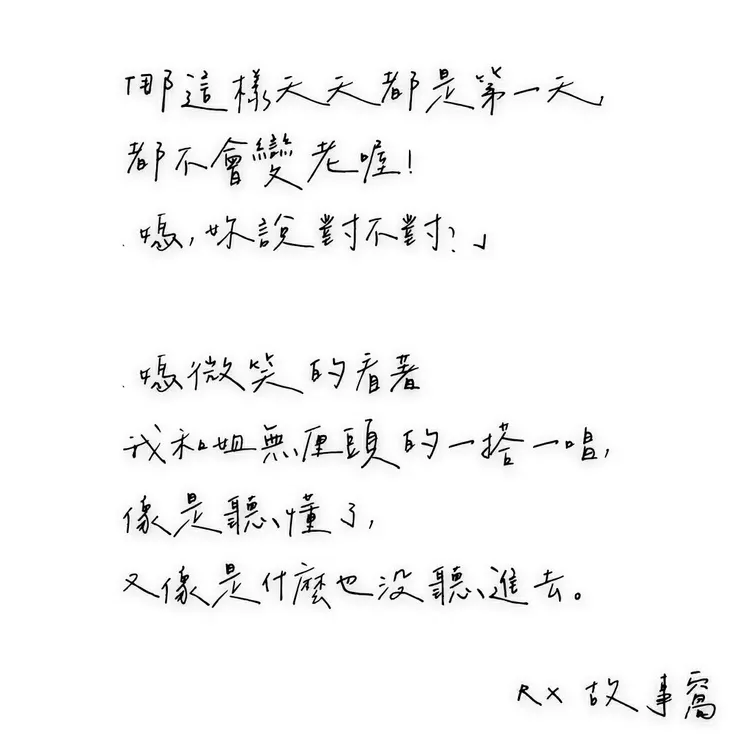 「那這樣天天都是第一天，
都不會變老喔！
媽，妳說對不對？」
媽微笑的看著
我和姐無厘頭的一搭一唱，
像是聽懂了，
又像是什麼也沒聽進去。
RX 故事窩